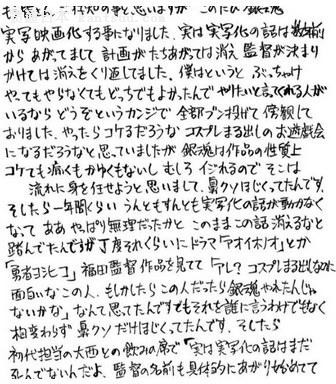 も ご存知の事と思いますが このたび銀魂
実写映画化する事になりました。実は実写化の話は数年前
からあがってまして 計画がたちあがっては消え 監督が決まり
かけては消えをくり返してました。僕はというと ぶっちゃけ
やってもやらなくてもどっちでもよかったんで やりたいと言ってくれる人が
いるなら どうぞというカンジで 全部ブン投げて 傍観して
おりました。やったらコケるだろうな コスプレまる出しのお遊戯会
になるだろうなと思っていましたが 銀魂は作品の性質上
コケても痛くもかゆくもないし むしろ イジれるので そこは
流れに身を任せようと思いまして、鼻クソほじくってたんです。
そしたら一年間くらい うんともすんとも実写化の話が動かなく
なって ああ やっぱり無理だったかと このままこの話 消えるなと
踏んでたんですが丁度それくらいにドラマ「アオイホノオ」とか
「勇者ヨシヒコ」福田監督作品を見てて 「アレ?コスプレまる出しなのに
面白いなこの人、もしかしたらこの人だったら銀魂やれたんじゃ
ないかな」なんて思てたんですでもそれを誰に言うわけでもなく
相変わらず 鼻クソだけほじくってたんです。そしたら
初代担当の大西との飲みの席で「実は実写化の話はまだ
死んでないんだよ、監督の名前も具体的にあがり始めてて